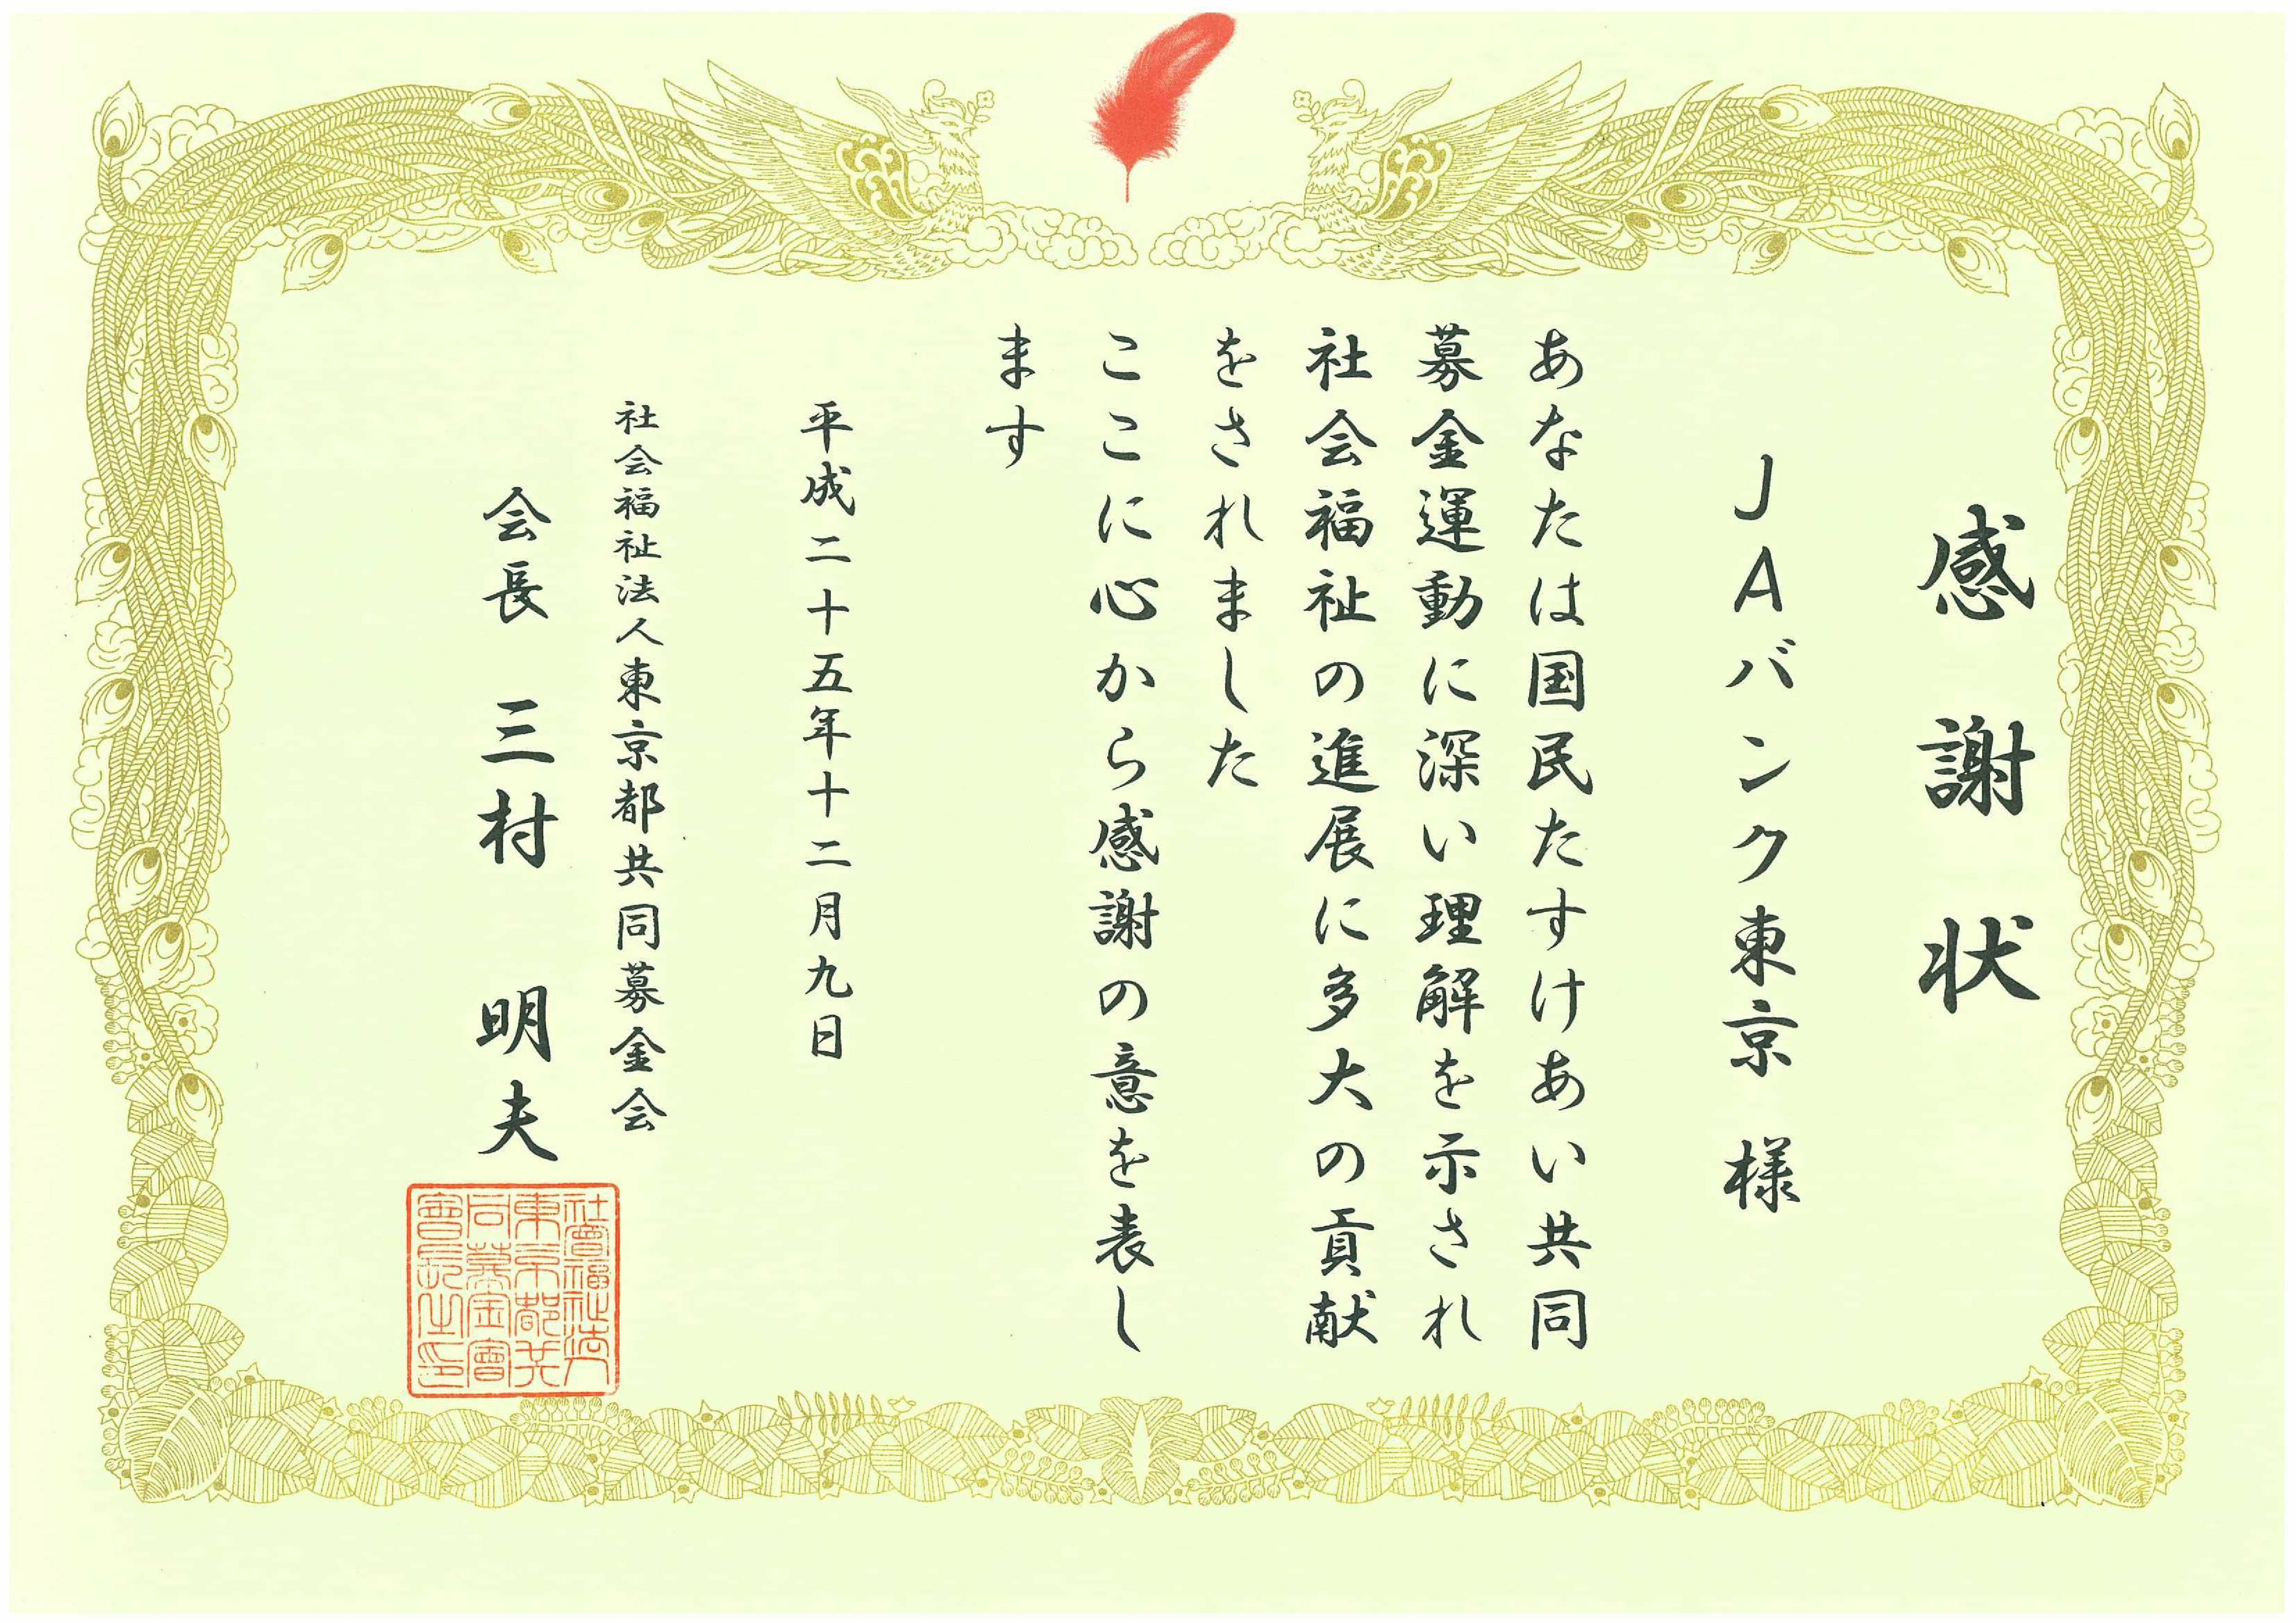 感謝状
JAバンク東京 様
あなたは国民たすけあい共同
募金運動に深い理解を示され
社会福祉の進展に多大の貢献
をされました
ここに心から感謝の意を表し
ます
平成二十五年十二月九日
社会福祉法人東京都共同募金会
会長 三村 明夫
社會福祉法人
東京都共
同募金會
會長之印